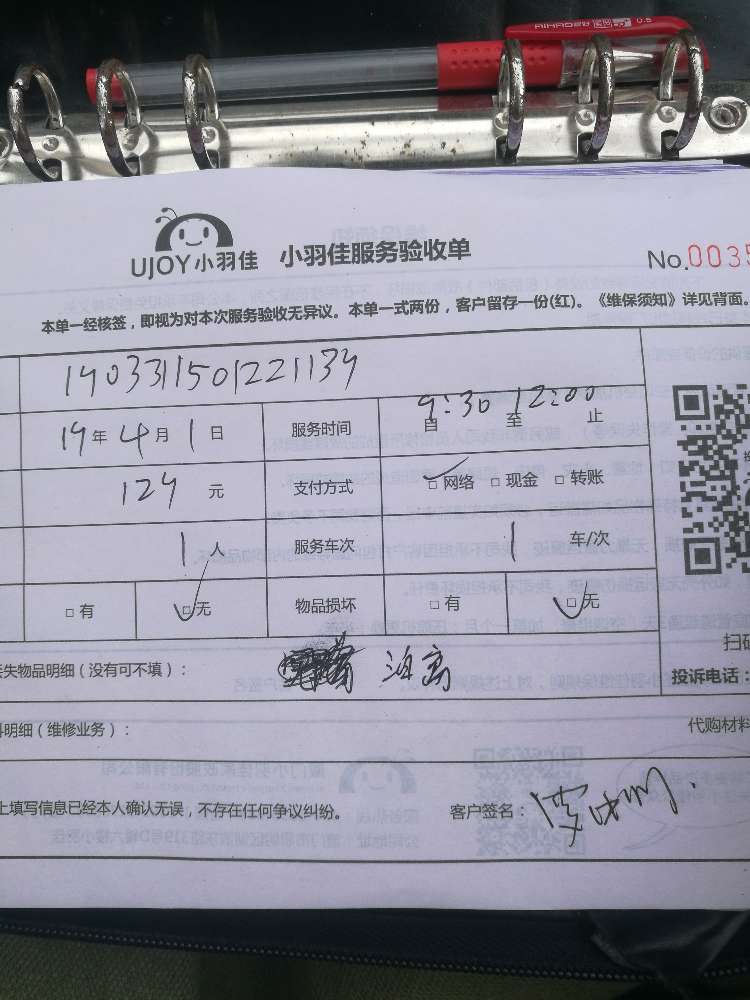 0.5
UJOY小羽佳 小羽佳服务验收单
No.0035
本单一经核签，即视为对本次服务验收无异议。本单一式两份，客户留存一份(红)。《维保须知》详见背面。
1403311501221134
19年4月1日 服务时间 9:30 12:00
自 至 止
124元 支付方式 □网络 □现金 □转账
1人 服务车次 1车/次
□有 □无 物品损坏 □有 □无
失物品明细（没有可不填）：
扫码
投诉电话：
明细（维修业务）： 代购材料
上填写信息已经本人确认无误，不存在任何争议纠纷。 客户签名：